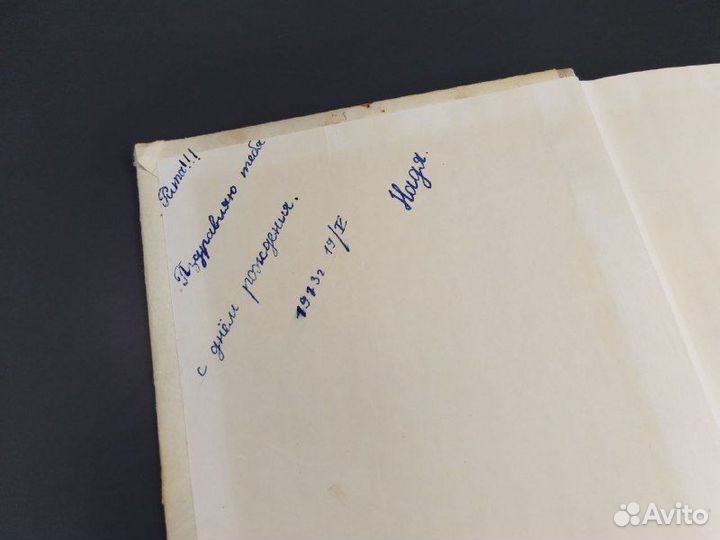 Рита!!!
Поздравляю тебя
с днём рождения.
1973г 19/V
Надя.
Avito